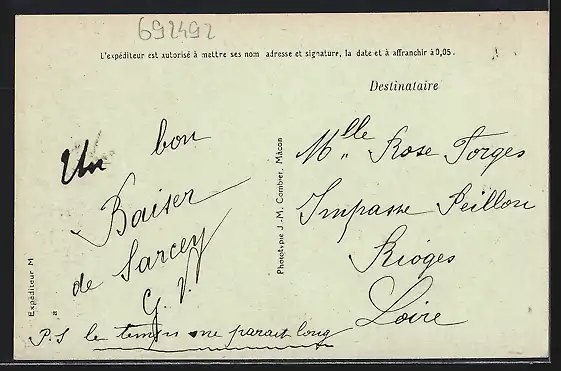 692492
L'expéditeur est autorisé à mettre ses nom adresse et signature, la date et à affranchir à 0,05.
Destinataire
Un bon
Baiser
de Sarcey
G. V.
P.S le temps me parait long
Expéditeur M
à
Phototypie J.-M. Combier, Mâcon
Mlle Rose Forges
Impasse Peillon
Riorges
Loire